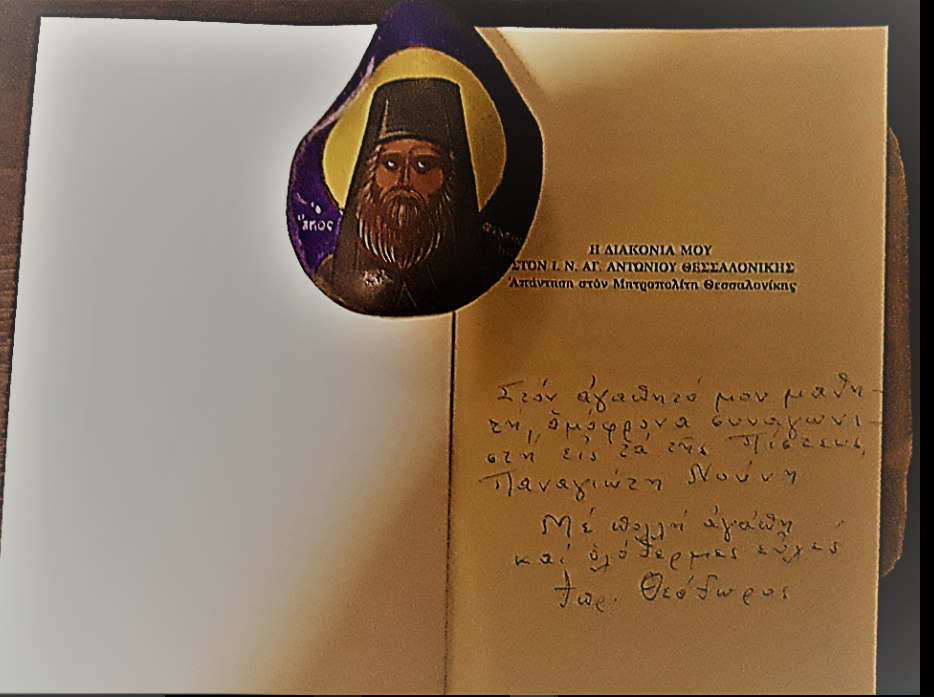 Ὁ Ἅγιος
Η ΔΙΑΚΟΝΙΑ ΜΟΥ
ΣΤΟΝ Ι. Ν. ΑΓ. ΑΝΤΩΝΙΟΥ ΘΕΣΣΑΛΟΝΙΚΗΣ
Ἀπάντηση στὸν Μητροπολίτη Θεσσαλονίκης
Στόν ἀγαπητό μου μαθη-
τή, ὁμόφρονα συναγωνι-
στή εἰς τά τῆς Πίστεως,
Παναγιώτη Νούνη
Μέ πολλή ἀγάπη
καί ὁλόθερμες εὐχές
†πρ. Θεόδωρος